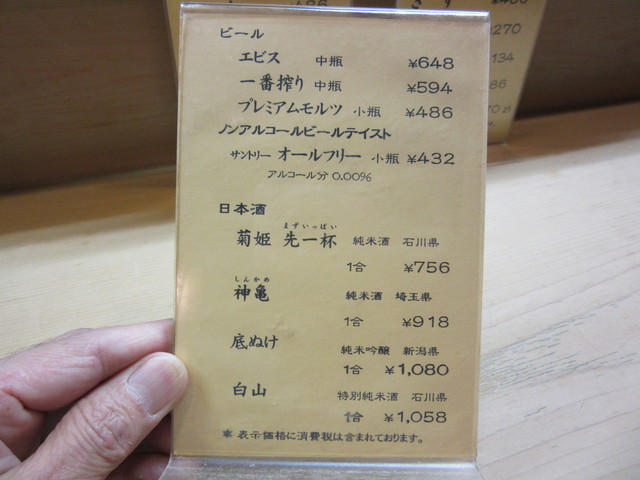 ビール
エビス 中瓶 ¥648
一番搾り 中瓶 ¥594
プレミアムモルツ 小瓶 ¥486
ノンアルコールビールテイスト
サントリー オールフリー 小瓶 ¥432
アルコール分 0.00%
日本酒
まずいっぱい
菊姫 先一杯 純米酒 石川県
1合 ¥756
しんかめ
神亀 純米酒 埼玉県
1合 ¥918
底ぬけ 純米吟醸 新潟県
1合 ¥1,080
白山 特別純米酒 石川県
1合 ¥1,058
※ 表示価格に消費税は含まれております。
270
134